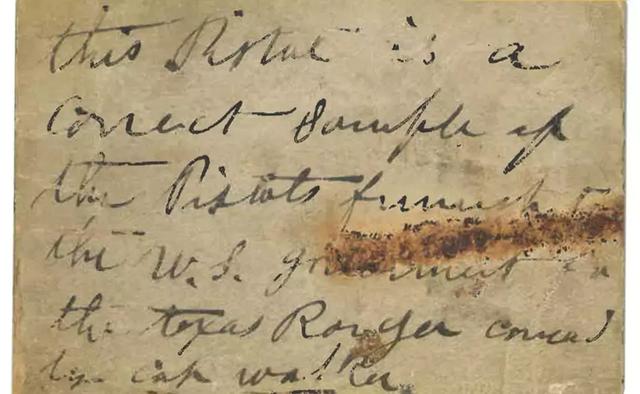 this Pistol is a
Correct Sample of
the Pistols furnish
the W.S. government
the texas Ranger comad
by cap walker